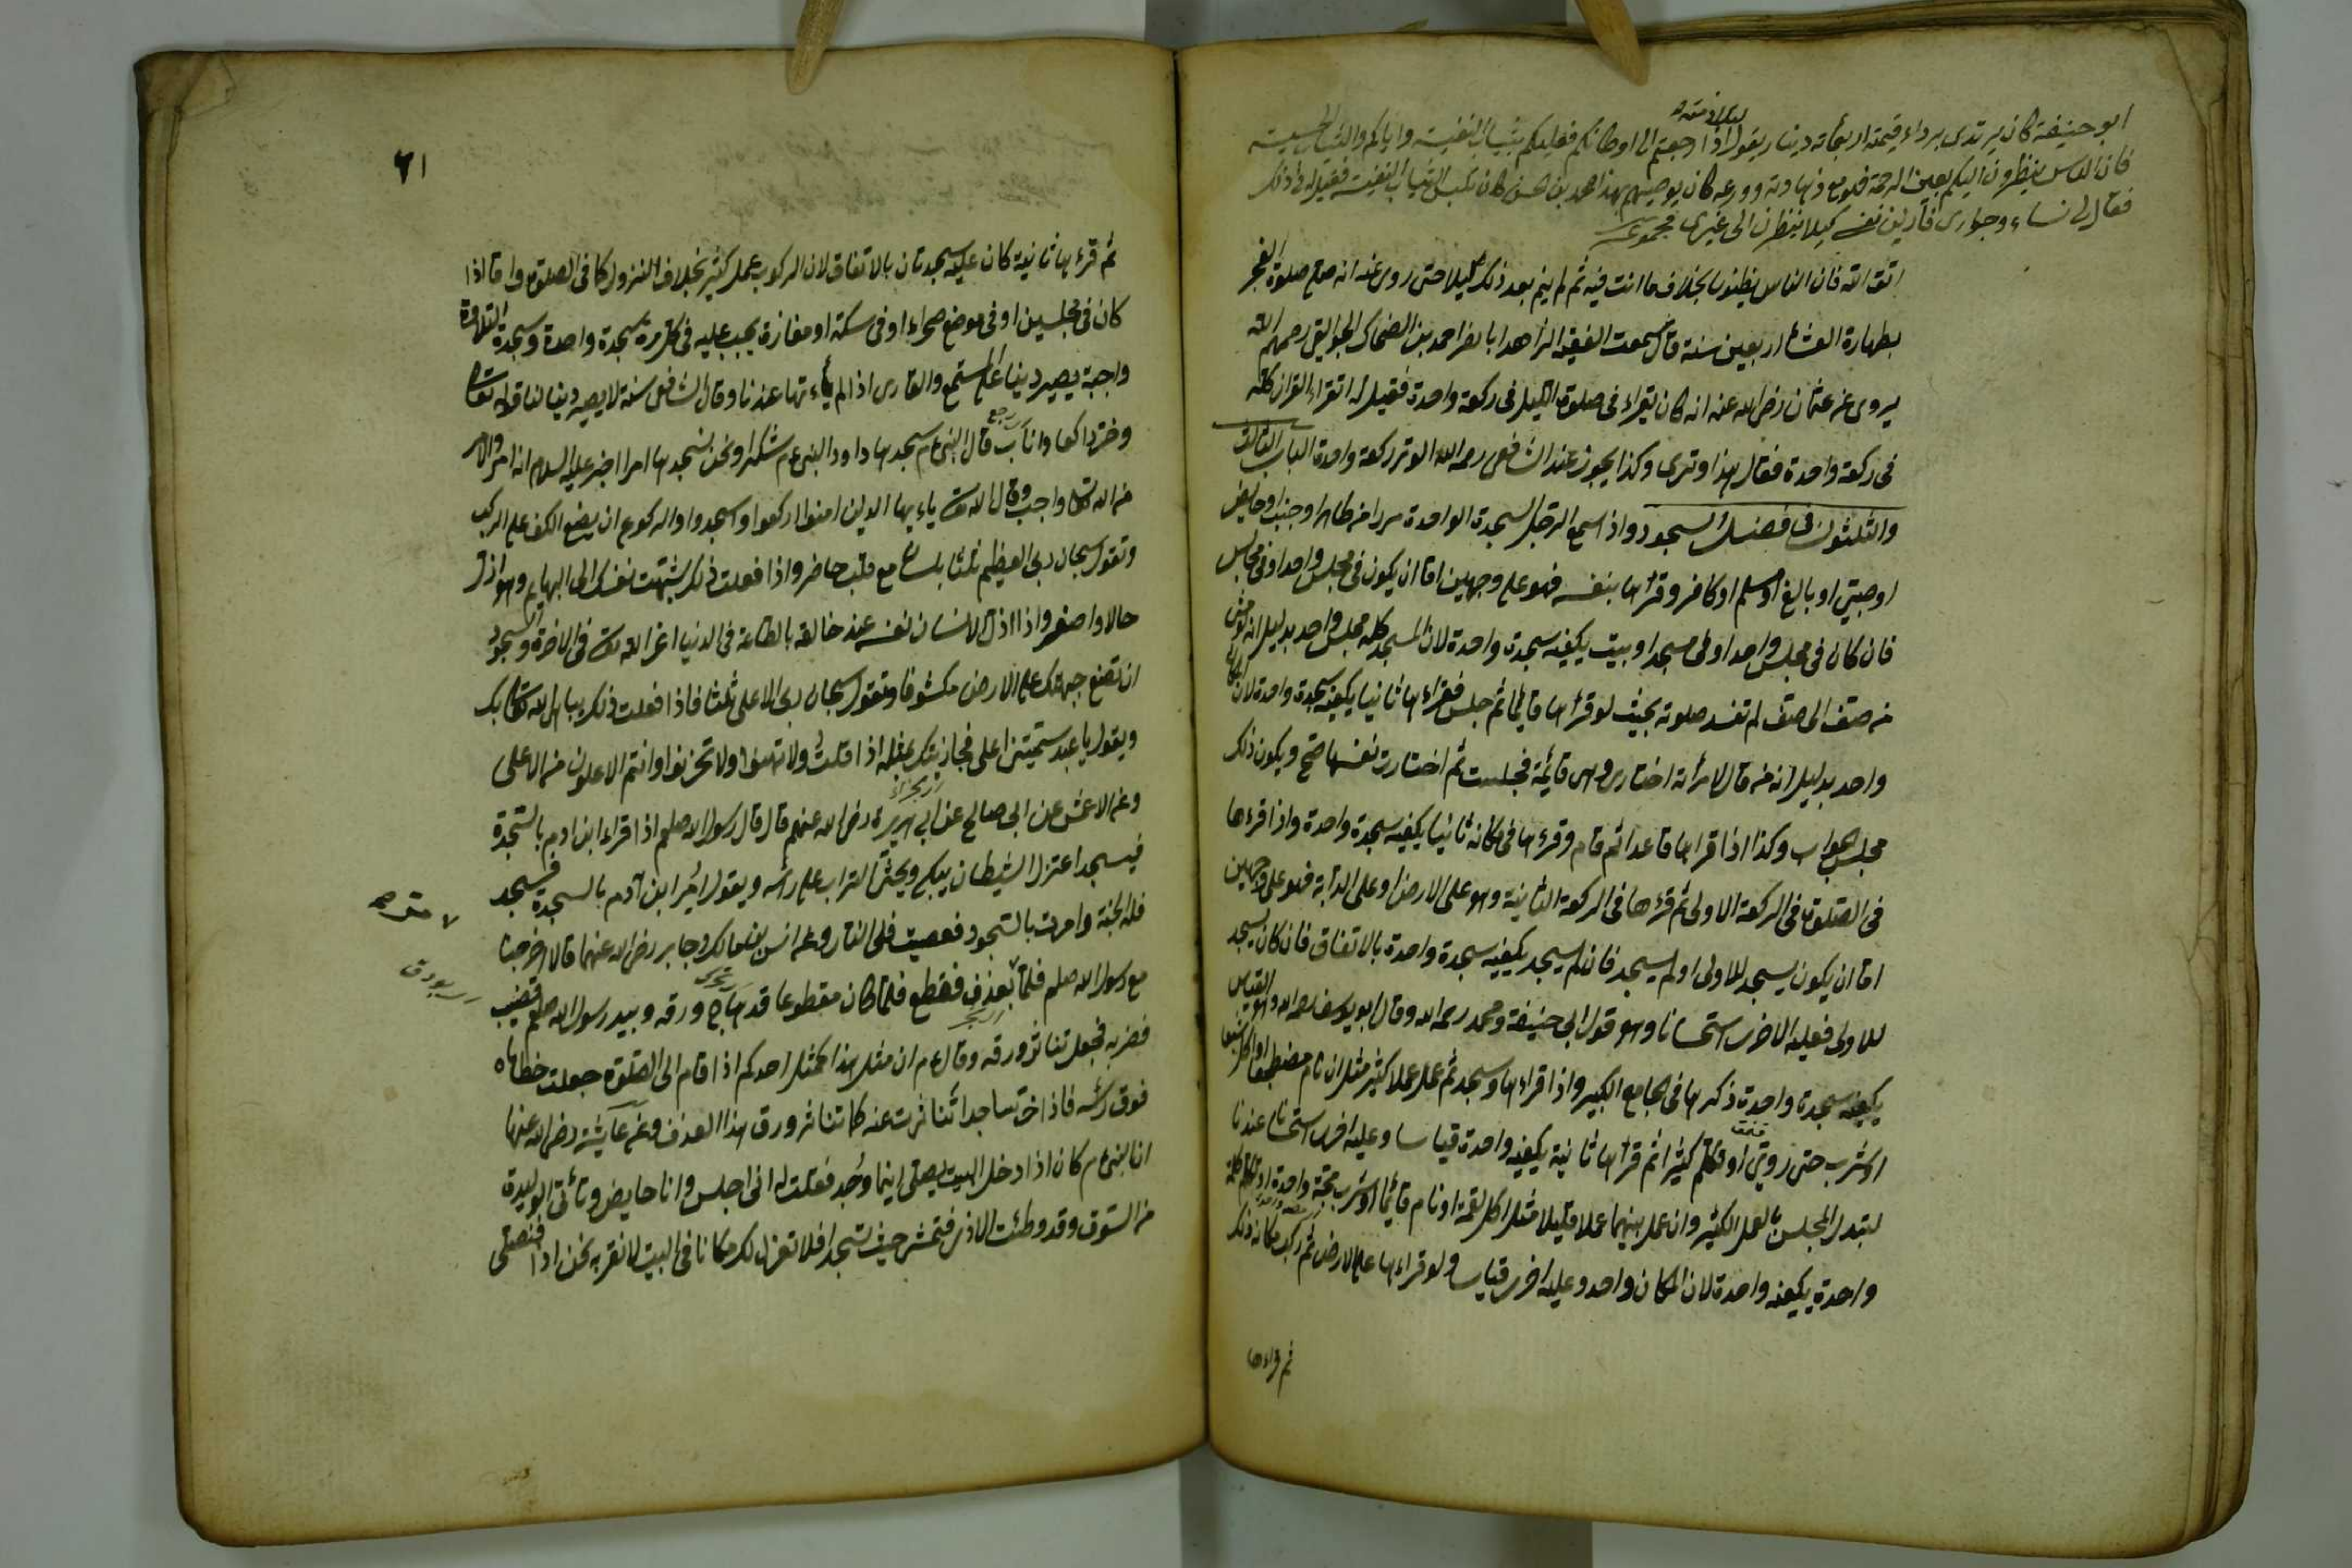 لتلامذته
ابو حنيفة كان يرتدى برداء قيمته اربعمأة دينار يقول اذا رجعتم الى اوطانكم فعليكم بثياب النفيسة واياكم والثياب الخسيسة
فان الناس ينظرون اليكم بعين الرحمة فهو مع زهادته وورعه كان يوصيهم بهذا محمد بن حسن كان يلبس الثياب النفيسة فقيل له فى ذلك
فقال لى نساء وجوارى فازين نفسى كيلا ينظرن الى غيرى مجموعه
اتق الله فان الناس يظنون بخلاف ما انت فيه ثم لم ينم بعد ذلك ليلا حتى روى عنه انه صلى صلوة الفجر
بطهارة العشاء اربعين سنة قال سمعت الفقيه الزاهد ابا نصر احمد بن الضحاك الجواليقى رحمهم الله
يروى عن عثمان رضى الله عنه انه كان يقراء فى صلوة الليل فى ركعة واحدة فقيل له اتقراء القران كله
فى ركعة واحدة فقال هذا وترى وكذا يجوز عند الشافعى رحمه الله الوتر ركعة واحدة الباب الثالث
والثلثون فى فضيلة السجود واذا سمع الرجل السجدة الواحدة مرارا من طاهر او جنب او حايض
او صبى او بالغ او مسلم او كافر وقرأها بنفسه فهو على وجهين اما ان يكون فى مجلس واحد او فى مجالس
فان كان فى مجلس واحد او فى مسجد او بيت يكفيه سجدة واحدة لان المسجد كله مجلس واحد بدليل انه لو مشى
من صف الى صف لم تفسد صلوته بحيث لو قرأها قائما ثم جلس فقراءها ثانيا يكفيه سجدة واحدة لان المكان
واحد بدليل انه من قال لامرأته اختارى وهى قائمة فجلست ثم اختارت نفسها صح ويكون ذلك
مجلس الجواب وكذا اذا قراها قاعدا ثم قام وقرءها فى مكانه ثانيا يكفيه سجدة واحدة واذا قرءها
فى الصلوة فى الركعة الاولى ثم قرءها فى الركعة الثانية وهو على الارض او على الدابة فهو على وجهين
اما ان يكون يسجد للاولى او لم يسجد فان لم يسجد يكفيه سجدة واحدة بالاتفاق فان كان يسجد
للاولى فعليه الاخرى استحسانا وهو قول ابى حنيفة ومحمد رحمه الله وقال ابو يوسف رحمه الله وهو القياس
يكفيه سجدة واحدة ذكرها فى الجامع الكبير واذا قراءها وسجد ثم عمل عملا كثير مثل ان نام مضطجعا او اكل شبعا
او شرب حتى روى او تكلم كثيرا ثم قرأها ثانية يكفيه واحدة قياسا وعليه اخرى استحسانا عندنا
لتبدل المجلس بالعمل الكثير وان عمل بينهما عملا قليلا مثل اكل لقمة او نام قائما او شرب واحدة او تكلم كلمة
واحدة يكفيه واحدة لان المكان واحد وعليه اخرى قياسا ولو قراءها على الارض ثم ركب مكانه ذلك
ثم قراءها
٦١
ثم قرءها ثانية كان عليه سجدتان بالاتفاق لان الركوب عمل كثير بخلاف النزول كما فى الصلوة واما اذا
كان فى مجلسين او فى موضع صحراء او فى سكة او مفازة يجب عليه فى كل مرة سجدة واحدة وسجدة التلاوة
واجبة يصير دينا على المستمع والقارى اذا لم يأت بها عندنا وقال الشافعى سنة لا يصير دينا لنا قوله تعالى
وخر راكعا واناب قال النبى عم سجدها داود النبى عم شكرا ونحن نسجدها امرا اخبر عليه السلام انه امر والامر
رجع
من الله تعالى واجب وقال الله تعالى ياءيها الدين امنوا اركعوا واسجدوا والركوع ان يضع الكف على الركب
وتقول سبحان ربى العظيم ثلثا مع قلب حاضر واذا فعلت ذلك شبهت نفسك الى البهايم وهو اذل
حالا واصغر واذا اذل الانسان نفسه عند خالقه بالطاعة فى الدنيا اعز الله تعالى فى الاخرة والسجود
ان تضع جبهتك على الارض مكشوفا وتقول سبحان ربى الاعلى ثلثا فاذا فعلت ذلك يباهى الله تعالى بك
ويقول يا عبد سميتنى اعلى فجازيتك بمثله اذ قلت ولا تهنوا ولا تحزنوا وانتم الاعلون من الاعلى
وعن الاعمش عن ابى صالح عن ابى هريرة رضى الله عنهم قال قال رسول الله صلعم اذا قراء ابن ادم بالسجدة
فيسجد اعتزل الشيطان يبكى ويحثى التراب على رأسه ويقول أمر ابن آدم بالسجدة فسجد
فله الجنة وامرت بالسجود فعصيت فلى النار وعن انس بن مالك وجابر رضى الله عنهما قالا خرجنا
مع رسول الله صلعم فلما بعذف فقطع فلما كان مقطوعا قد هاج ورقه وبيد رسول الله صلعم قضيب
فضربه فجعل تناثر ورقه وقال عم ان مثل هذا كمثل احدكم اذا قام الى الصلوة جعلت خطاياه
فوق رأسه فاذا خر ساجدا تناثرت عنه كما تناثر ورق هذا العذف وعن عايشة رضى الله عنها
ان النبى عم كان اذا دخل البيت يصلى اينما وجد فقلت له انى اجلس وانا حايض وتأتى الوليدة
من السوق وقد وطئت الاذى فتمشى حيث تسجد افلا تعزل لك مكانا فى البيت لا نقربه نحن اذا فتصلى